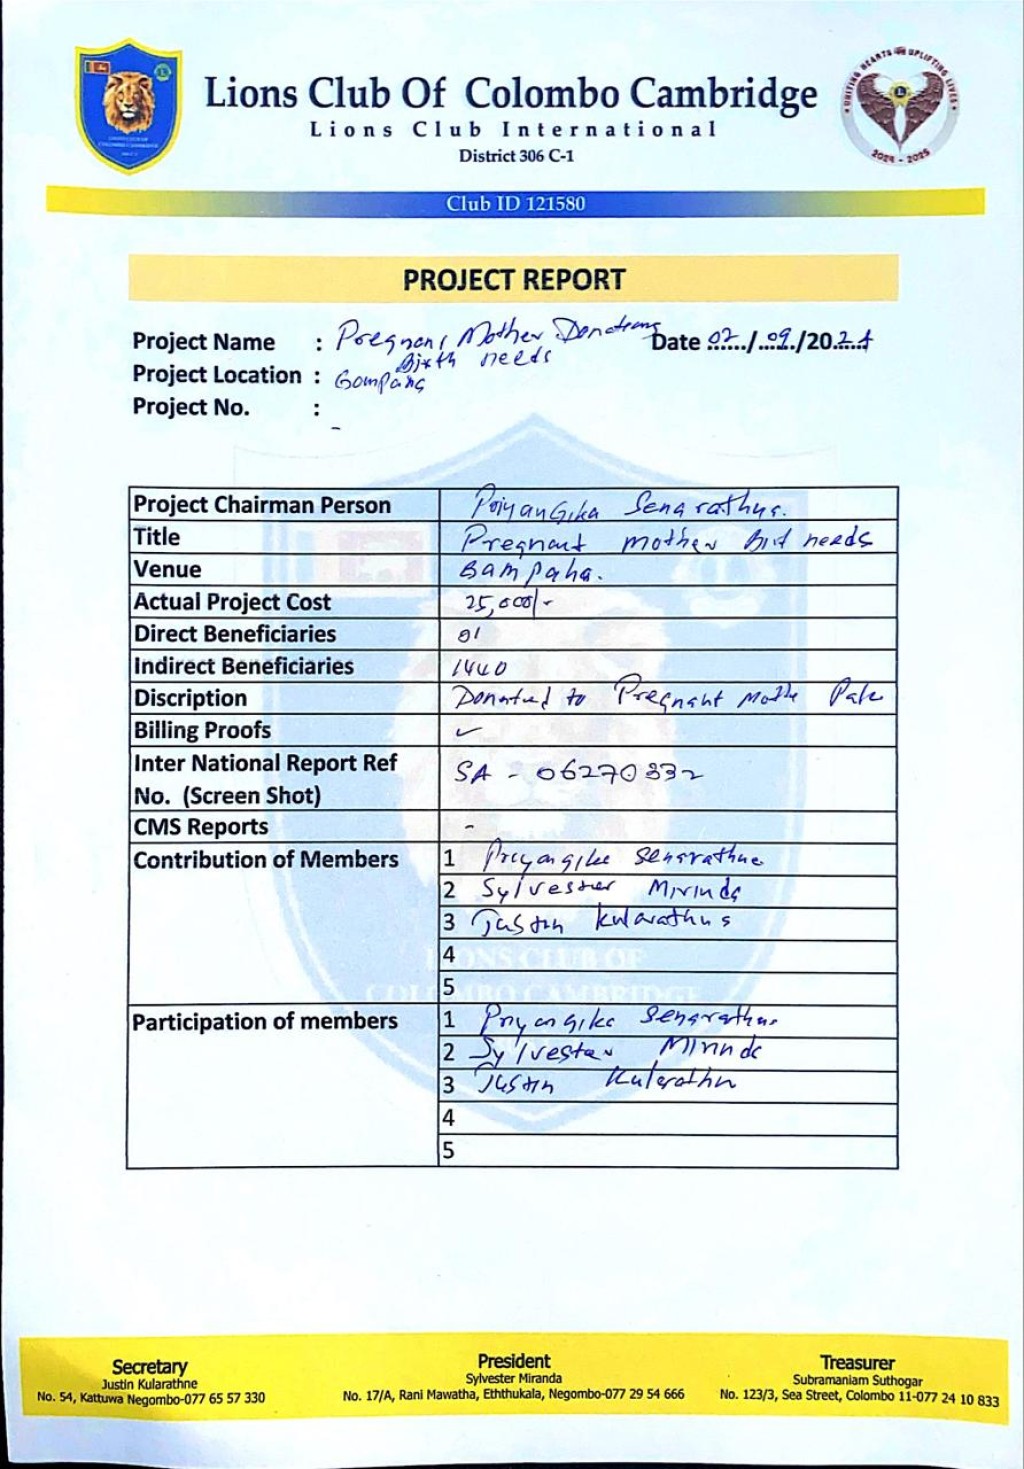 Lions Club Of Colombo Cambridge
Lions Club International
District 306 C-1
UNITING HEARTS UPLIFTING LIVES
2024 - 2025
Club ID 121580
PROJECT REPORT
Project Name : Pregnant Mother Donations Date 02/09/2024
Birth needs
Project Location : Gampaha
Project No. : -
Project Chairman Person Priyangika Senarathne.
Title Pregnant mother needs
Venue Gampaha.
Actual Project Cost 25,000/-
Direct Beneficiaries 01
Indirect Beneficiaries 1440
Discription Donated to Pregnant
Billing Proofs ✓
Inter National Report Ref SA - 06270332
No. (Screen Shot)
CMS Reports -
Contribution of Members 1 Priyangika Senarathne
2 Sylvester Mirinda
3 Justin Kularathna
4
5
LIONS CLUB OF
COLOMBO CAMBRIDGE
Participation of members 1 Priyangika Senarathne
2 Sylvester Mirinda
3 Justin Kularathn
4
5
Secretary
Justin Kularathne
No. 54, Kattuwa Negombo-077 65 57 330
President
Sylvester Miranda
No. 17/A, Rani Mawatha, Eththukala, Negombo-077 29 54 666
Treasurer
Subramaniam Suthogar
No. 123/3, Sea Street, Colombo 11-077 24 10 833